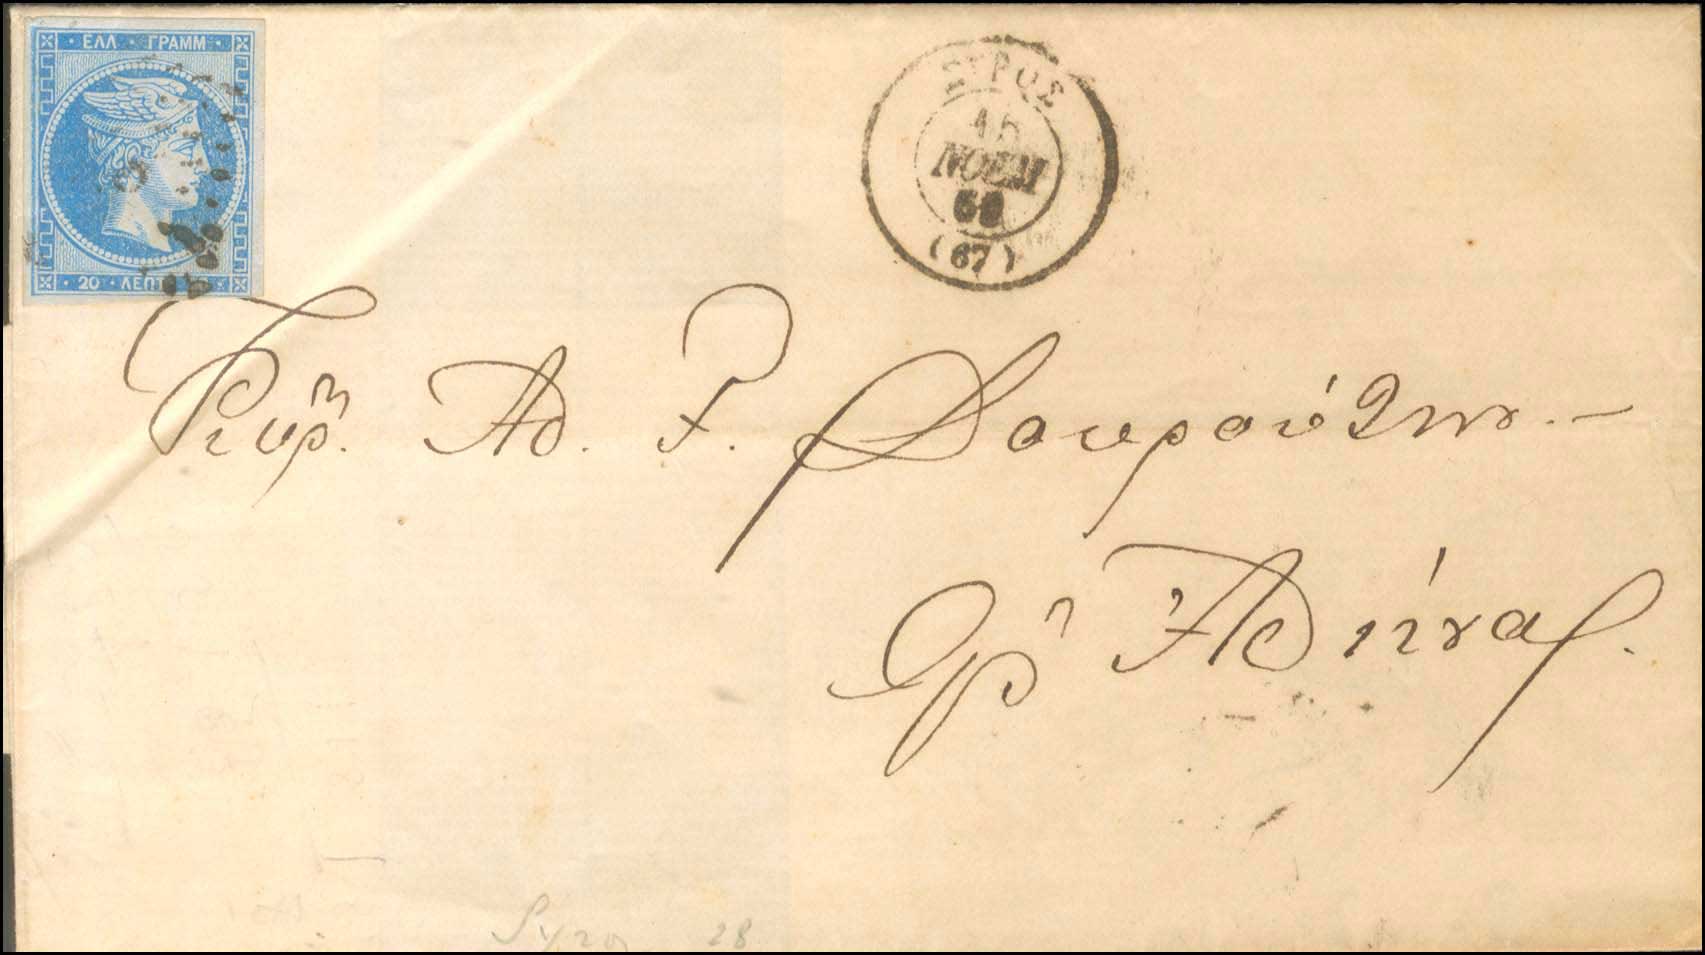 ΕΛΛ · ΓΡΑΜΜ
20 · ΛΕΠΤ
ΣΥΡΟΣ
15
ΝΟΕΜ
(67)
Κύρ. Αδ. Γ. Δουρούτην.–
Εἰς Ἀθήνας.
28